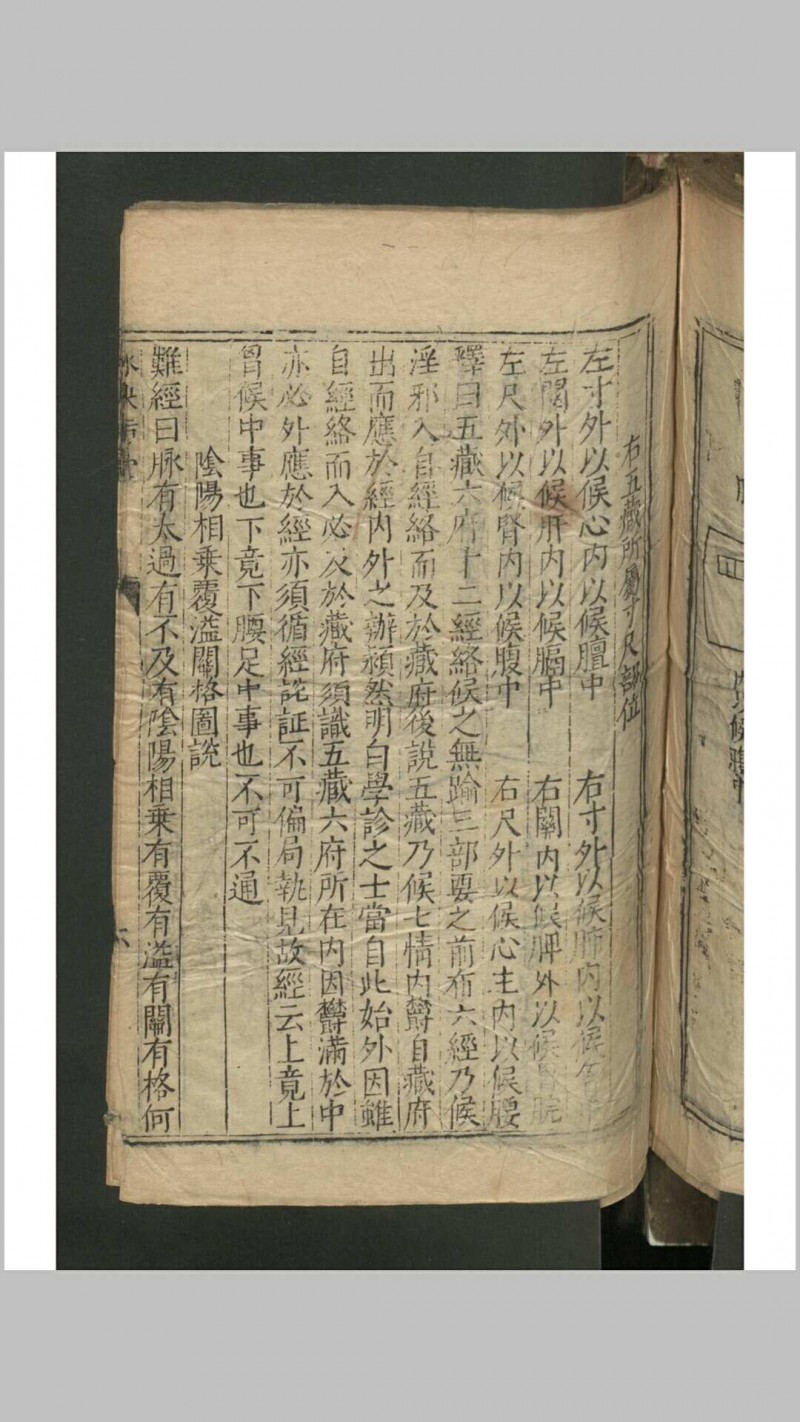 右五藏所屬寸尺部位
左寸外以候心內以候膻中 右寸外以候肺內以候
左關外以候肝內以候膈中 右關內以候脾外以候胃脘
左尺外以候腎內以候腹中 右尺外以候心主內以候腰
釋曰五藏六府十二經絡候之無踰三部要之前布六經乃候
淫邪入自經絡而及於藏府後說五藏乃候七情內欝自藏府
出而應於經內外之辦頴然明白學診之士當自此始外因雖
自經絡而入必及於藏府須識五藏六府所在內因欝滿於中
亦必外應於經亦須循經說証不可偏局執見故經云上竟上
胷候中事也下竟下腰足中事也不可不通
陰陽相乘覆溢關格圖說
難經曰脉有太過有不及有陰陽相乘有覆有溢有關有格何
六
候腹中